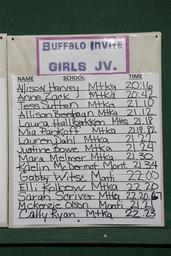 BUFFALO INVITE
GIRLS JV.
NAME SCHOOL TIME
Allison Harvey Mtka 20:16
Anne Zack Mtka 20:42
Tess Sutton Mtka 21:10
Allison Mtka 21:17
Laura Mtka 21:18
Mia Mtka
Lauren Dahl Mtka
Justine Bowe Mtka 21:24
Mara Melmer Mtka 21:30
Kaelin McDermot Mont 21:34
Gabby Witse Monti 22:00
Elli Kolbow Mtka 22:20
Sarah Scriver Mtka 22:20
Mckenzie Olson Monti
Cally Ryan Mtka 22:23